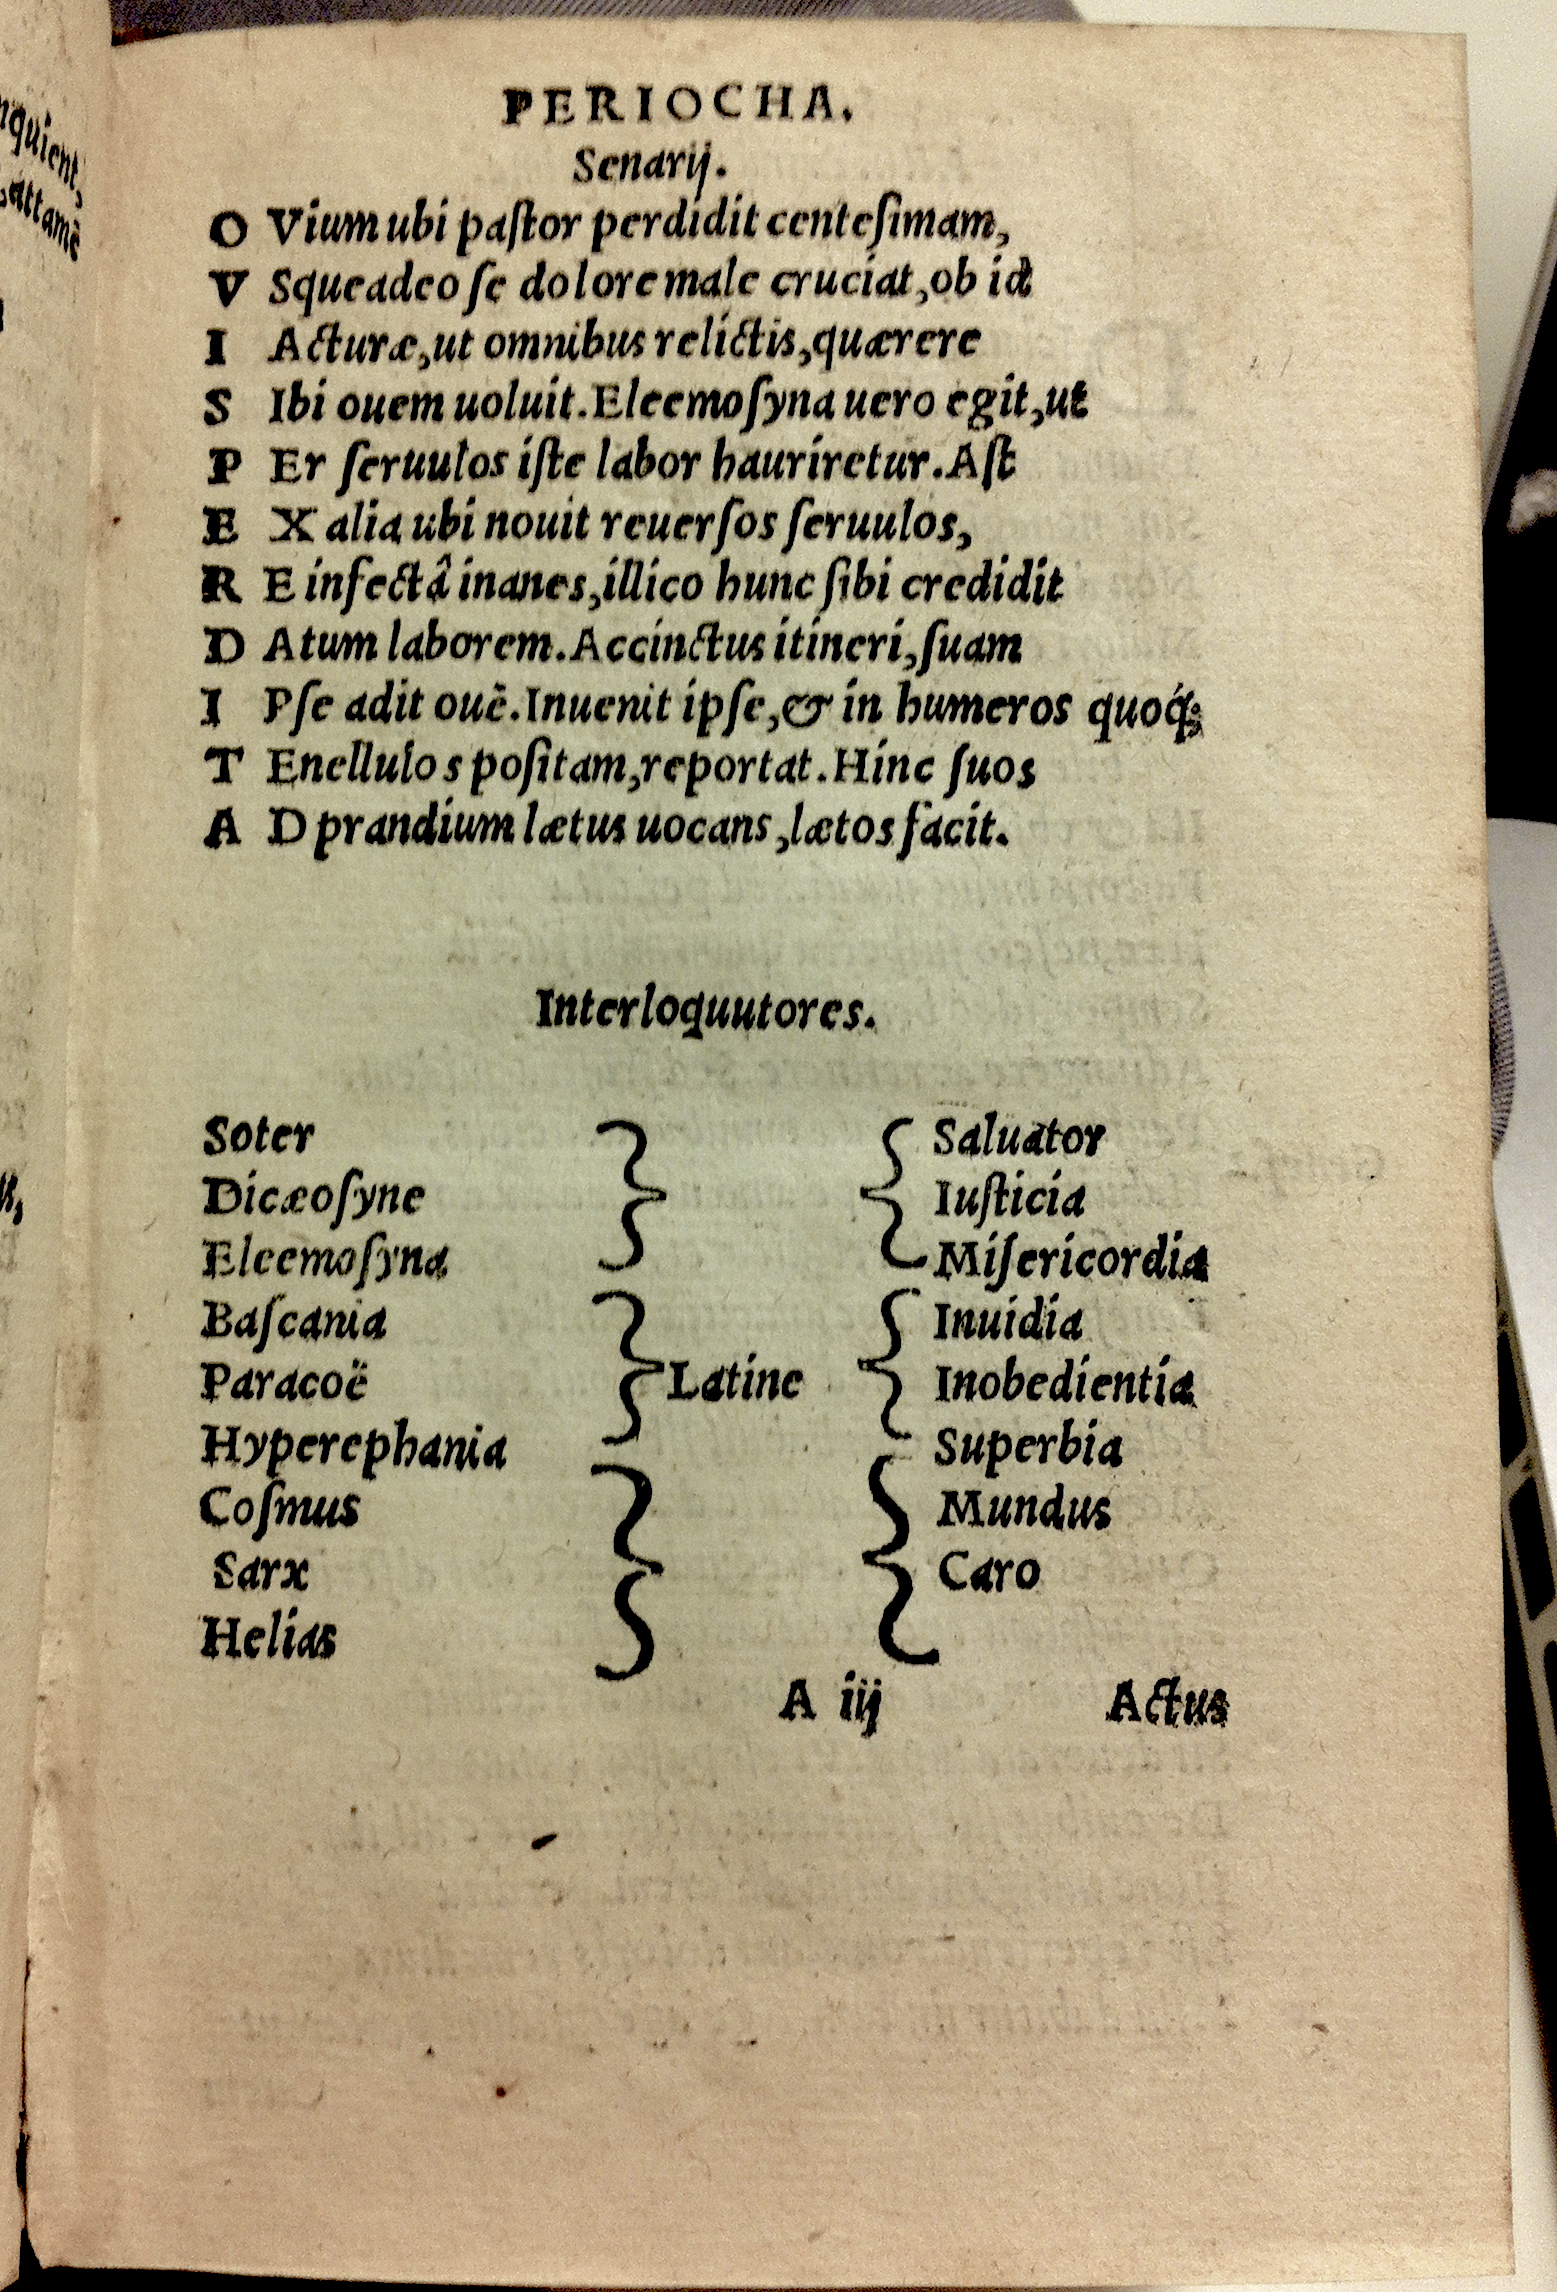 nquient,
, attamẽ
PERIOCHA.
Senarij.
O Vium ubi paſtor perdidit centeſimam,
V Sque adeo ſe dolore male cruciat, ob id
I Acturæ, ut omnibus relictis, quærere
S Ibi ouem uoluit. Eleemoſyna uero egit, ut
P Er ſeruulos iſte labor hauriretur. Aſt
E X alia ubi nouit reuerſos ſeruulos,
R E infectâ inanes, illico hunc ſibi credidit
D Atum laborem. Accinctus itineri, ſuam
I Pſe adit ouẽ. Inuenit ipſe, & in humeros quoq́;
T Enellulos poſitam, reportat. Hinc ſuos
A D prandium lætus uocans, lætos facit.
Interloquutores.
Soter Saluator
Dicæoſyne Iuſticia
Eleemoſyna Miſericordia
Baſcania Inuidia
Paracoë Latine Inobedientia
Hyperephania Superbia
Coſmus Mundus
Sarx Caro
Helias
A iij Actus